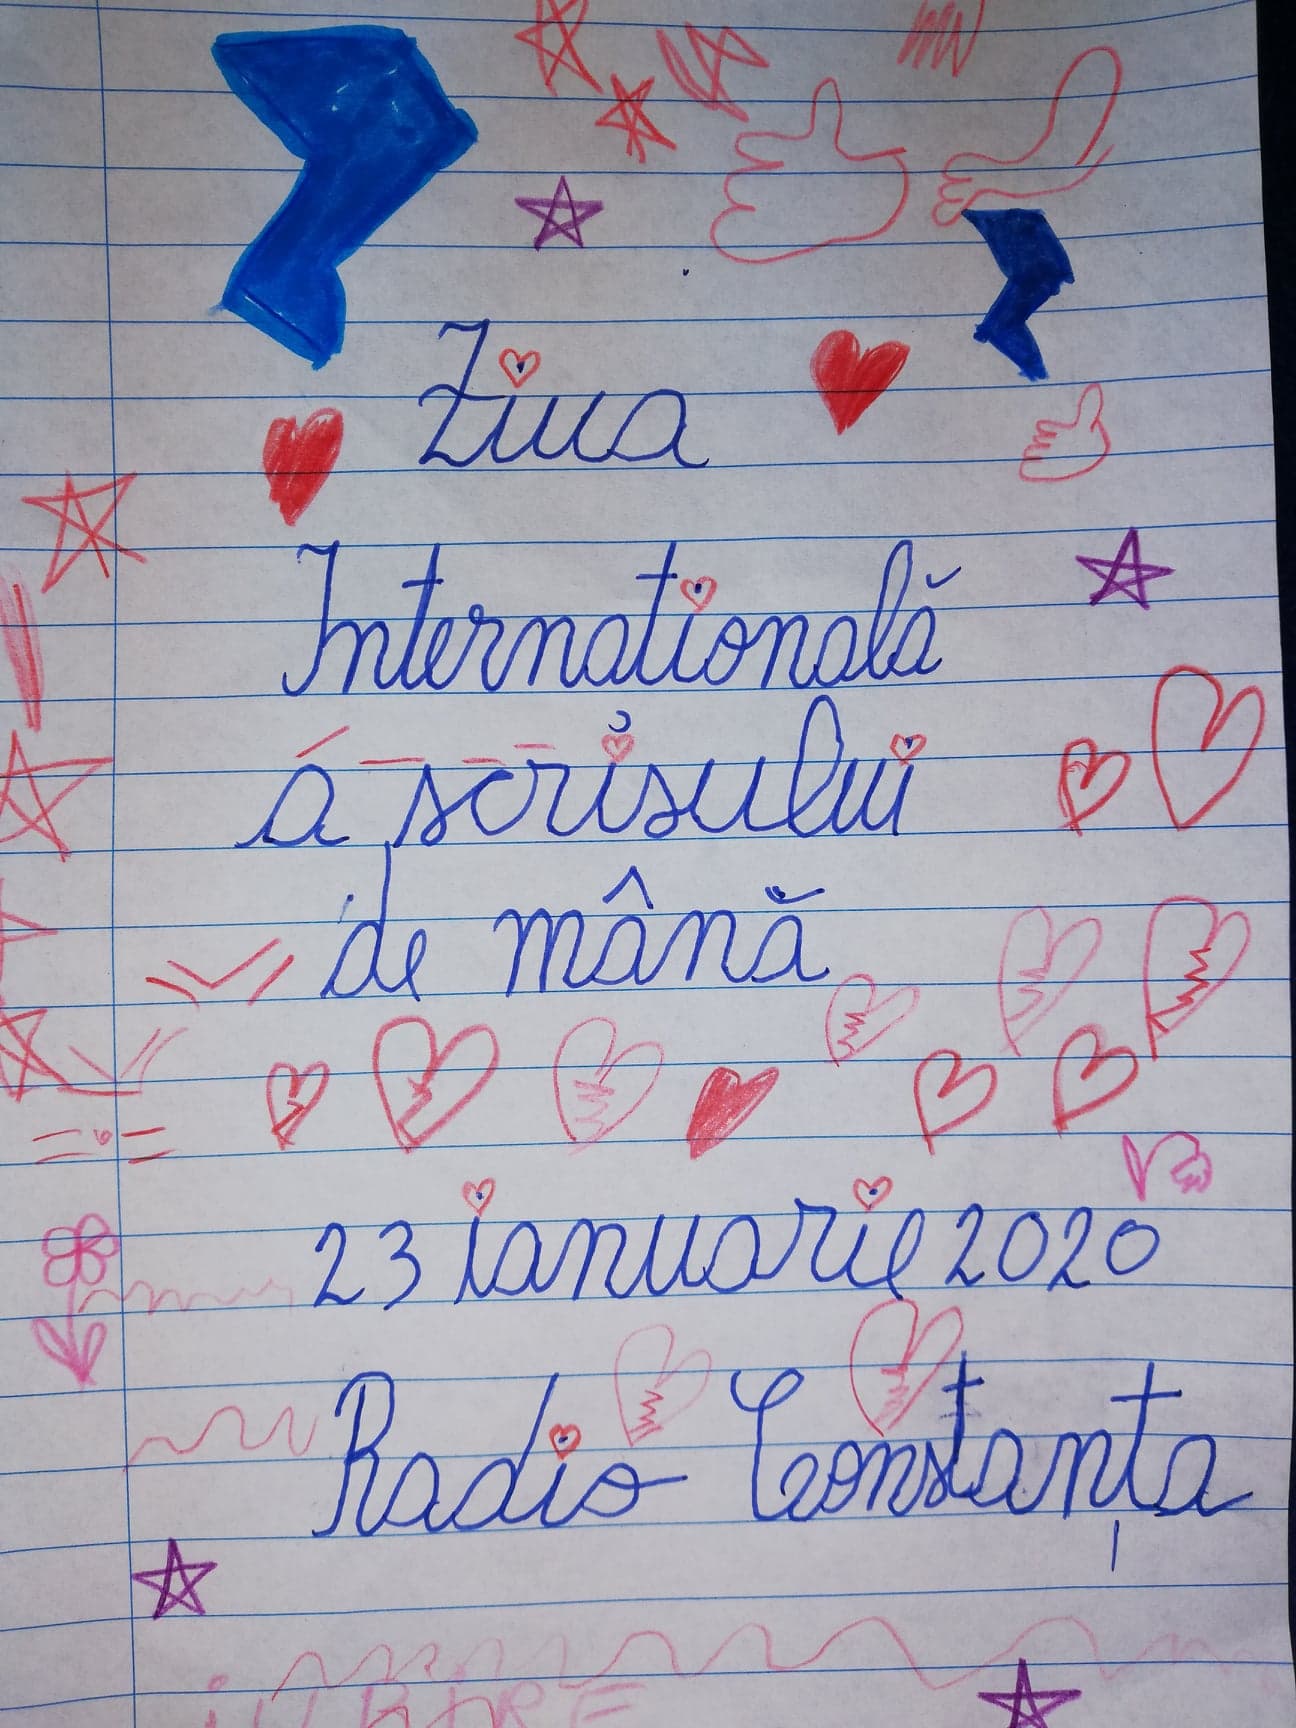 Ziua
Internatională
a scrisului
de mână
23 ianuarie 2020
Radio Constanța
iUBIRE